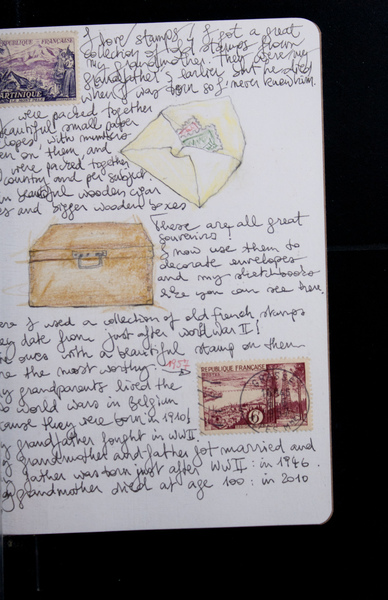 I love stamps, I got a great
REPUBLIQUE FRANÇAISE
collection of old stamps from
my grandmother. They were my
grandfather's earlier but he died
when I was born so I never knew him.
MARTINIQUE
were packed together
beautiful small paper
with numbers
on them and
were packed together
country and per subject
in beautiful wooden cigar
and bigger wooden boxes
These are all great
souvenirs!
I now use them to
decorate envelopes
and my sketchbooks
like you can see there.
I used a collection of old french stamps
date from just after world war II!
ones with a beautiful stamp on them
the most worthy. 1957
REPUBLIQUE FRANÇAISE
grandparents lived the
world wars in Belgium
they were born in 1910!
6F
grandfather fought in WWII.
grandmother and father got married and
father was born just after WWII: in 1946.
grandmother died at age 100: in 2010